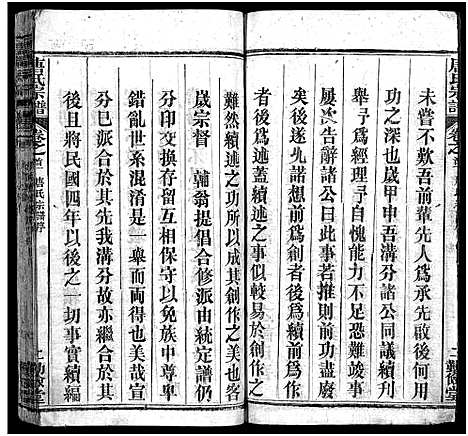 唐氏宗譜
未嘗不歎吾前輩先人爲承先啟後何用
功之深也歲甲申吾溝分諸公同議續刋
舉予爲經理予自愧能力不足恐難竣事
屢次告辭諸公曰此事若推則前功盡廢
後遂先志諸凡爲創者難爲續前人之事
者爲後述蓋續述之事似較易於創作之
難然續述之功所以成其創作之美也客
歲宗督 輔翁提倡合修派由統定譜仍
分印交換存留互相保守以免族中尊卑
錯亂世系混淆是一舉而兩得也美哉宣
分巳派合於其先我溝分故亦繼合於其
後且將民國四年以後之一切事實續編
唐氏宗譜
卷之首
唐氏宗譜序
二
勤儉堂